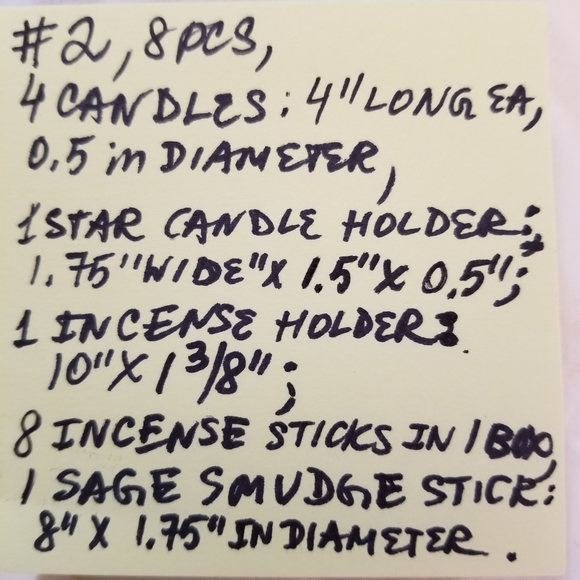 #2, 8PCS,
4 CANDLES: 4" LONG EA,
0.5 in DIAMETER,
1 STAR CANDLE HOLDER:
1.75" WIDE" X 1.5" X 0.5";
1 INCENSE HOLDER:
10" X 1 3/8";
8 INCENSE STICKS IN 1 BOX,
1 SAGE SMUDGE STICK:
8" X 1.75" IN DIAMETER.